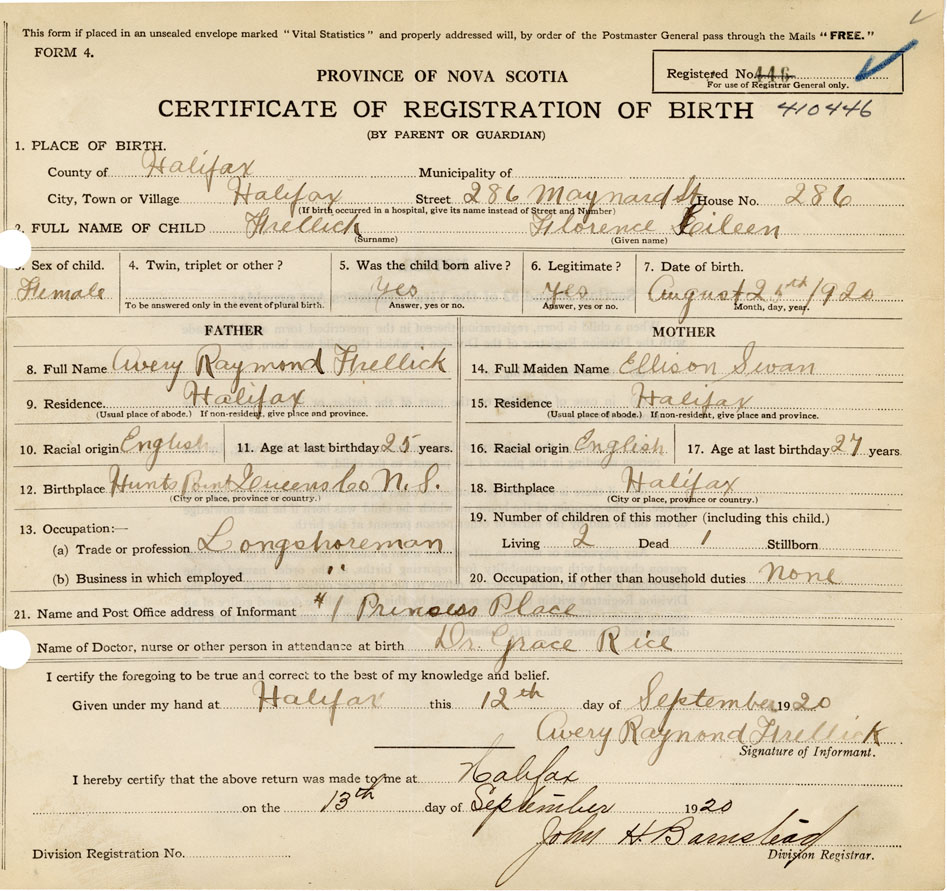 This form if placed in an unsealed envelope marked "Vital Statistics" and properly addressed will, by order of the Postmaster General pass through the Mails "FREE."
FORM 4.
Registered No. 446
For use of Registrar General only.
PROVINCE OF NOVA SCOTIA
CERTIFICATE OF REGISTRATION OF BIRTH 410446
(BY PARENT OR GUARDIAN)
1. PLACE OF BIRTH.
County of Halifax Municipality of
City, Town or Village Halifax Street 286 Maynard St House No. 286
(If birth occurred in a hospital, give its name instead of Street and Number)
2. FULL NAME OF CHILD Threllick Florence Eileen
(Surname) (Given name)
3. Sex of child. 4. Twin, triplet or other ? 5. Was the child born alive ? 6. Legitimate ? 7. Date of birth.
Female Yes Yes August 25th 1920
To be answered only in the event of plural birth. Answer, yes or no. Answer, yes or no. Month, day, year.
FATHER MOTHER
8. Full Name Avery Raymond Threllick 14. Full Maiden Name Ellison Swan
9. Residence. Halifax 15. Residence Halifax
(Usual place of abode.) If non-resident, give place and province. (Usual place of abode.) If non-resident, give place and province.
10. Racial origin English 11. Age at last birthday 25 years. 16. Racial origin English 17. Age at last birthday 27 years
12. Birthplace Hunts Point Queens Co N. S. 18. Birthplace Halifax
(City or place, province or country.) (City or place, province or country.)
13. Occupation:— 19. Number of children of this mother (including this child.)
(a) Trade or profession Longshoreman Living 2 Dead 1 Stillborn
(b) Business in which employed " 20. Occupation, if other than household duties None
21. Name and Post Office address of Informant #1 Prinsess Place
Name of Doctor, nurse or other person in attendance at birth Dr. Grace Rice
I certify the foregoing to be true and correct to the best of my knowledge and belief.
Given under my hand at Halifax this 12th day of September 1920
Avery Raynond Threllick
Signature of Informant.
I hereby certify that the above return was made to me at Halifax
on the 13th day of September 1920
John H. Barnstead
Division Registration No. Division Registrar.